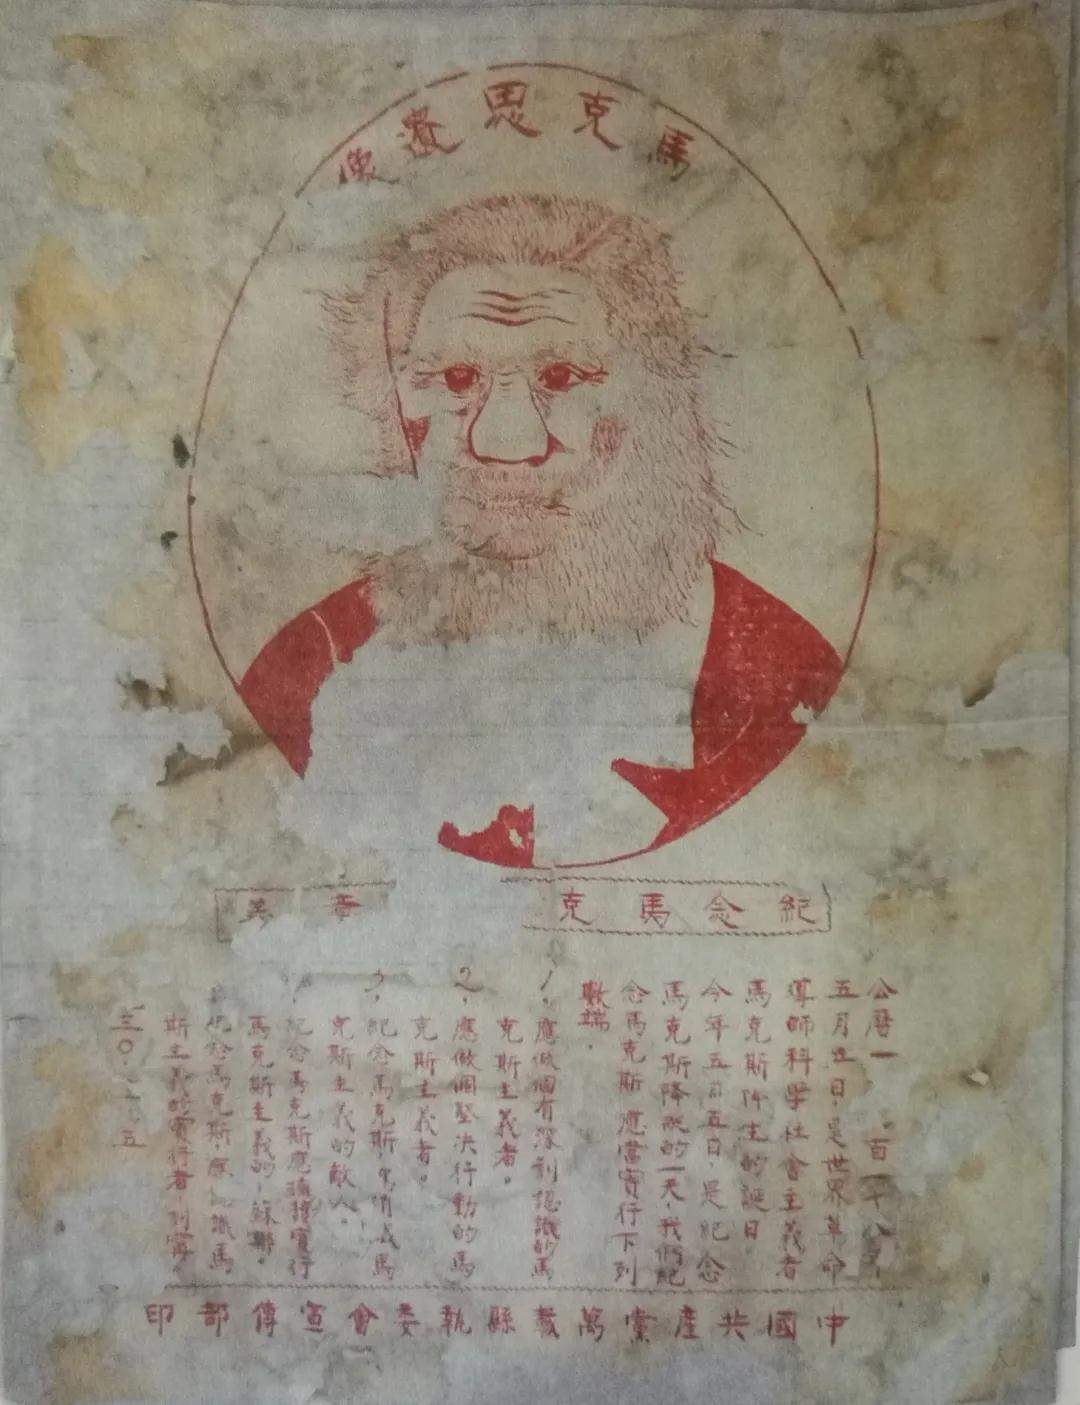 馬克思遺像
紀念馬克
意義
公曆一 百一十八年，
五月五日，是世界革命
導師科学社會主義者
馬克斯降生的誕日。
今年五月五日，是紀念
馬克斯降誕的一天，我們紀
念馬克斯 應當實行下列
數端．
1．應做個有深刻認識的馬
克斯主義者。
2．應做個堅决行動的馬
克斯主義者。
3．紀念馬克斯 消滅馬
克斯主義的敵人。
紀念馬克斯應擁護實行
馬克斯主義的，蘇聯。
紀念馬克斯，應認識馬
斯主義的實行者 列寧。
三〇． 五
中國共產黨萬載縣執委會宣傳部印